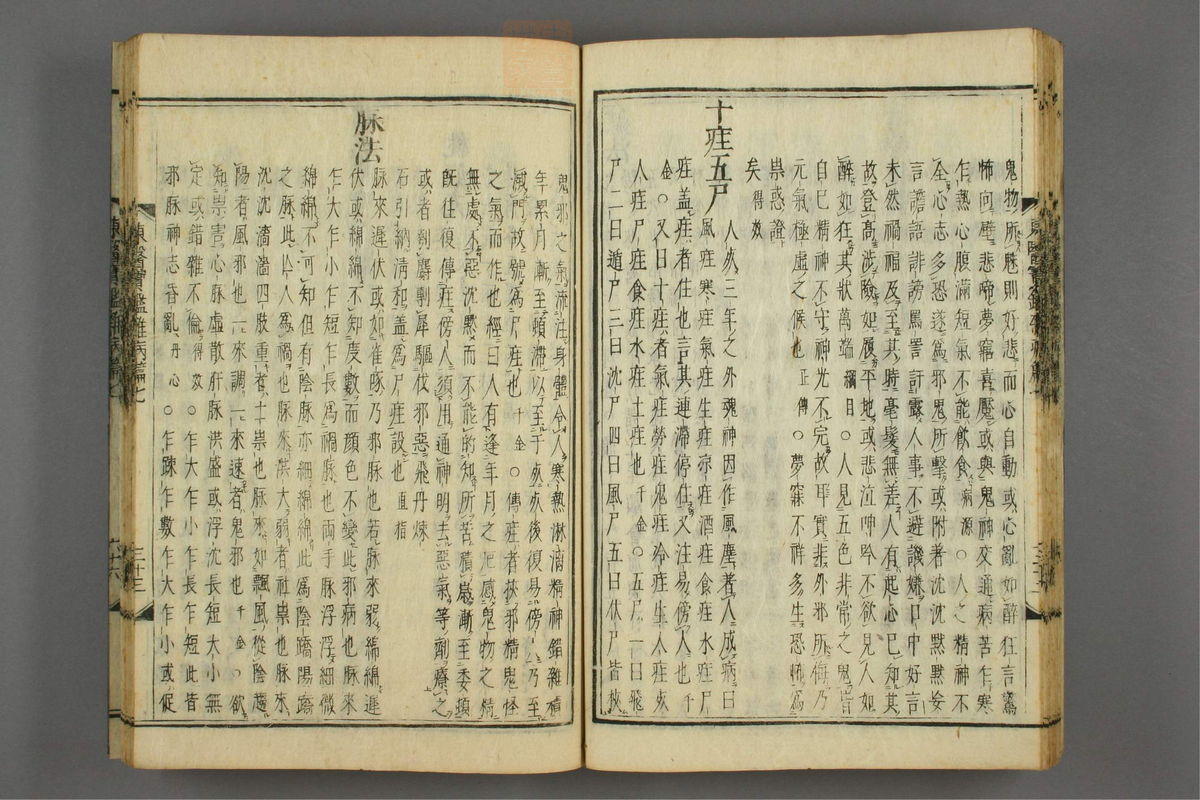 鬼物所魅則好悲而心自動或心亂如醉狂言驚
怖向壁悲啼夢寤喜魘或與鬼神交通病苦乍寒
乍熱心腹滿短氣不能飮食病源○人之精神不
全心志多恐遂爲邪鬼所擊或附著沈沈默默妄
言譫語誹謗罵詈訐露人事不避譏嫌口中好言
未然禍福及至其時毫髮無差人有起心已知其
故登高涉險如履平地或悲泣呻吟不欲見人如
醉如狂其狀萬端綱目○人見五色非常之鬼皆
自已精神不守神光不完故耳實非外邪所侮乃
元氣極虛之候也正傳○夢寐不祥多生恐怖爲
祟惑證
矣得效
十疰五尸
人死三年之外魂神因作風塵著人成病曰
風疰寒疰氣疰生疰凉疰酒疰食疰水疰尸
疰盖疰者住也言其連滯停住又注易傍人也千
金○又曰十疰者氣疰勞疰鬼疰冷疰生人疰死
人疰尸疰食疰水疰土疰也千金○五尸一曰飛
尸二曰遁尸三曰沈尸四曰風尸五曰伏尸皆挾
鬼邪之氣流注身體令人寒熱淋瀝精神錯雜積
年累月漸至頓滯以至于死死後復易傍人乃至
滅門故號爲尸疰也千金○傳疰者挾邪精鬼怪
之氣而作也經曰人有逢年月之厄感鬼物之精
無處不惡沈默而不能的知所苦積歲漸至委頓
旣往復傳疰傍人須用通神明去惡氣等劑療之
或者剸麝剸犀驅伐邪惡飛丹煉
石引納淸和盖爲尸疰設也直指
脉法
脉來遲伏或如雀啄乃邪脉也若脉來弱綿綿遲
伏或綿綿不知度數而顔色不變此邪病也脉來
乍大乍小乍短乍長爲禍脉也兩手脉浮浮細微
綿綿不可知但有陰脉亦細綿綿此爲陰蹻陽蹻
之脉此亾人爲禍也脉來洪大弱者社祟也脉來
沈沈濇濇四肢重者土祟也脉來如飄風從陰趨
陽者風邪也一來調一來速者鬼邪也千金○欲
知祟害心脉虛散肝脉洪盛或浮沈長短大小無
定或錯雜不倫得效○乍大乍小乍長乍短此皆
邪脉神志昏亂丹心○乍踈乍數乍大乍小或促
東醫寶鑑雜病篇七
三十三